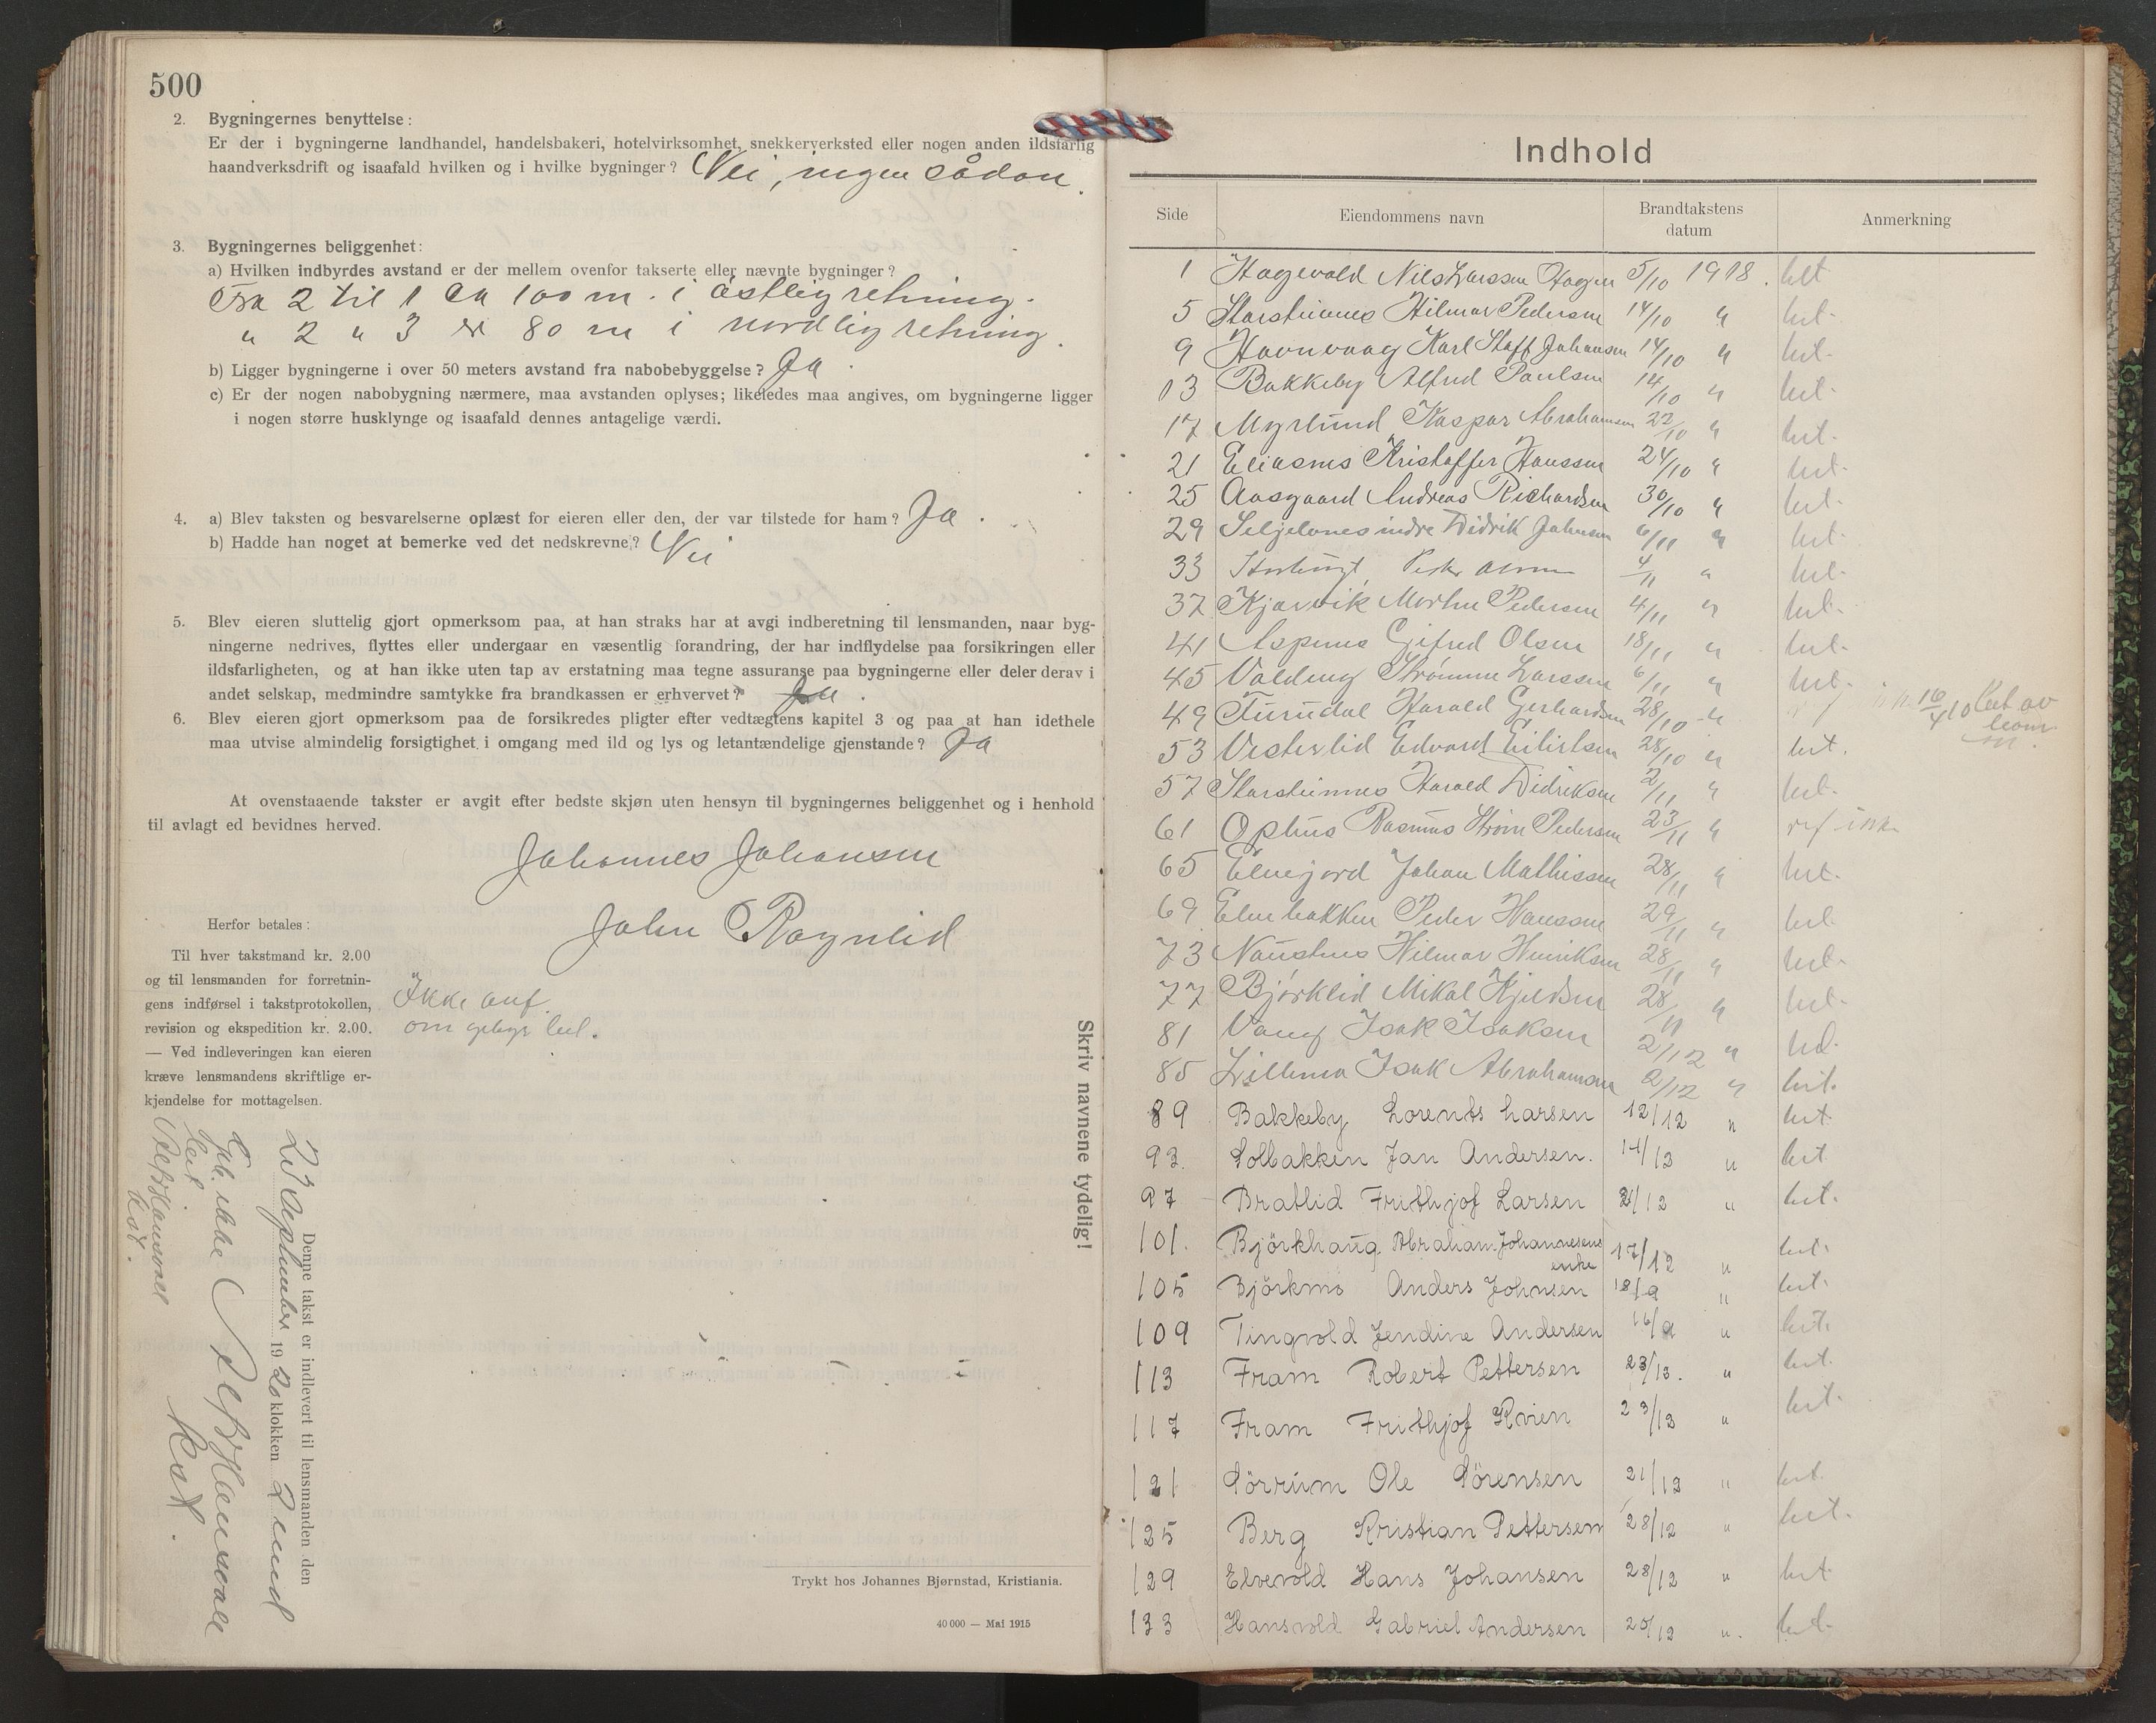 500
2. Bygningernes benyttelse:
Er der i bygningerne landhandel, handelsbakeri, hotelvirksomhet, snekkerverksted eller nogen anden ildsfarlig
haandverksdrift og isaafald hvilken og i hvilke bygninger? Nei, ingen sådan.
3. Bygningernes beliggenhet:
a) Hvilken indbyrdes avstand er der mellem ovenfor takserte eller nævnte bygninger?
Fra 2 til 1 ca 100 m. i östlig retning.
" 2 " 3 er 80 m i nordlig retning.
b) Ligger bygningerne i over 50 meters avstand fra nabobebyggelse? Ja
c) Er der nogen nabobygning nærmere, maa avstanden oplyses; likeledes maa angives, om bygningerne ligger
i nogen større husklynge og isaafald dennes antagelige værdi.
4. a) Blev taksten og besvarelserne oplæst for eieren eller den, der var tilstede for ham? Ja.
b) Hadde han noget at bemerke ved det nedskrevne? Nei
5. Blev eieren sluttelig gjort opmerksom paa, at han straks har at avgi indberetning til lensmanden, naar byg-
ningerne nedrives, flyttes eller undergaar en væsentlig forandring, der har indflydelse paa forsikringen eller
ildsfarligheten, og at han ikke uten tap av erstatning maa tegne assuranse paa bygningerne eller deler derav i
andet selskap, medmindre samtykke fra brandkassen er erhvervet? Ja.
6. Blev eieren gjort opmerksom paa de forsikredes pligter efter vedtægtens kapitel 3 og paa at han idethele
maa utvise almindelig forsigtighet i omgang med ild og lys og letantændelige gjenstande? Ja
At ovenstaaende takster er avgit efter bedste skjøn uten hensyn til bygningernes beliggenhet og i henhold
til avlagt ed bevidnes herved.
Johannes Johansen
John Rognlid
Herfor betales:
Til hver takstmand kr. 2.00
og til lensmanden for forretnin-
gens indførsel i takstprotokollen,
revision og ekspedition kr. 2.00.
— Ved indleveringen kan eieren
kræve lensmandens skriftlige er-
kjendelse for mottagelsen.
Ikke anf.
om gebyr
Denne takst er indlevert til lensmanden den
27 September 1920 klokken
ikke
Skriv navnene tydelig!
Trykt hos Johannes Bjørnstad, Kristiania.
40 000 — Mai 1915
Indhold
Side Eiendommens navn Brandtakstens datum Anmerkning
1 Hagevold Nils Larssen Hagen 5/10 1918. bet
5 Storsteinnes Hilmar Pedersen 14/10 " bet.
9 Havnvaag Karl Staff Johansen 14/10 " bet.
13 Bakkeby Alfred Paulsen 14/10 " bet.
17 Myrlund Kaspar Abrahamsen 22/10 " bet.
21 Eliasnes Kristoffer Hanssen 24/10 " bet.
25 Aasgaard Andreas Richardsen 30/10 " bet.
29 Seljelvnes indre Didrik Johnsen 6/11 " bet.
33 Peder Olsen 4/11 " bet.
37 Kjærvik Morten Pedersen 4/11 " bet.
41 Aspenes Olsen 18/11 " bet.
45 Larssen 6/11 " bet.
49 Furudal Harald Gerhardsen 28/10 "
53 Vesterlid Edvard Eilertsen 28/10 " bet.
57 Storsteinnes Harald Didriksen 2/11 " bet.
61 Rasmus Strøm Pedersen 23/11 "
65 Elvejord Johan Mathissen 28/11 " bet.
69 Elvebakken Peder Hanssen 29/11 " bet.
73 Naustnes Hilmar Henriksen 28/11 " bet.
77 Bjørklid Mikal Kjeldsen 28/11 " bet.
81 Vang Isak Isaksen 2/12 " bet.
85 Isak Abrahamsen 2/12 " bet.
89 Bakkeby Lorents Larsen 12/12 " bet.
93. Solbakken Jan Andersen. 14/12 " bet
97 Bratlid Frithjof Larsen 21/12 " bet.
101. Björkhaug Abraham Johannesens enke 17/12 " bet.
105 Björkmo Anders Johnsen 18/12 " bet.
109 Tingvold Jendine Andersen 16/12 " bet.
113 Fram Robert Pettersen 23/12. " bet.
117 Fram Frithjof Kvien 23/12 " bet.
121 Sörrum Ole Sörensen 21/12 " bet.
125 Berg Kristian Pettersen 28/12 " bet.
129 Elvevold Hans Johansen 28/12 " bet.
133 Hansvold Gabriel Andersen 20/12 ". bet.